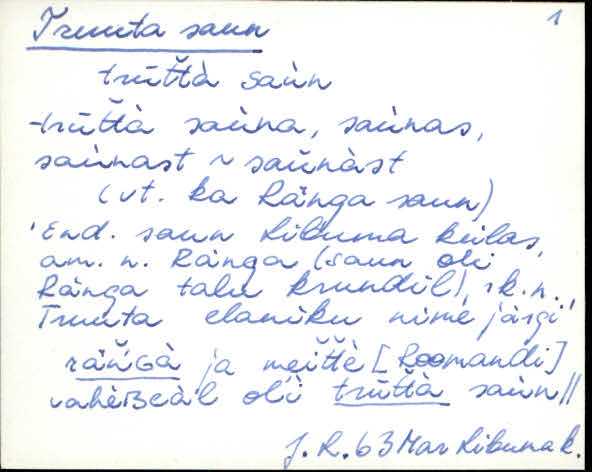 Truuta saun 1
trūt̆tà saùn
trūt̆tà saùna, saùnas,
saùnast ~ saŭnàst
(vt. ka Ränga saun)
'End. saun Kibuma külas,
am. n. Ränga (saun oli
Ränga talu krundil), rk. n.
Truuta elaniku nime järgi'
räŋ̆Gà ja meit̆tè [Roomandi]
vahèʙeàl ol'i trūt̆tà saùn ||
J. R. 63 Mar Kibuna k.